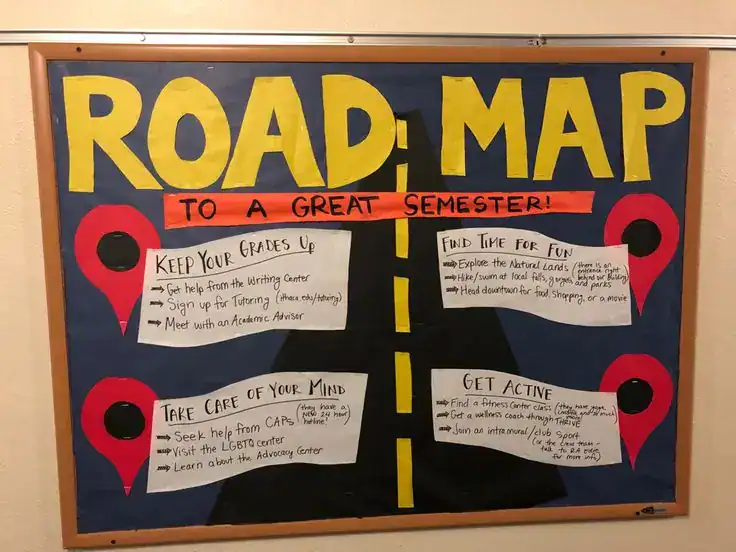 ROAD MAP
TO A GREAT SEMESTER!
KEEP YOUR GRADES UP
Get help from the Writing Center
Sign up for Tutoring (ithaca.edu/tutoring)
Meet with an Academic Advisor
FIND TIME FOR FUN
Explore the Natural Lands (there is an
entrance right
behind our building)
Hike/swim at local falls, gorges and parks
Head downtown for food, shopping, or a movie
TAKE CARE OF YOUR MIND
Seek help from CAPS (they have a
NEW 24 hour
hotline!)
Visit the LGBTQ center
Learn about the Advocacy Center
GET ACTIVE
Find a fitness center class (they have yoga,
and so much
more)
Get a wellness coach through THRIVE
Join an intramural/club sport
(or the crew team -
talk to RA
for more info)